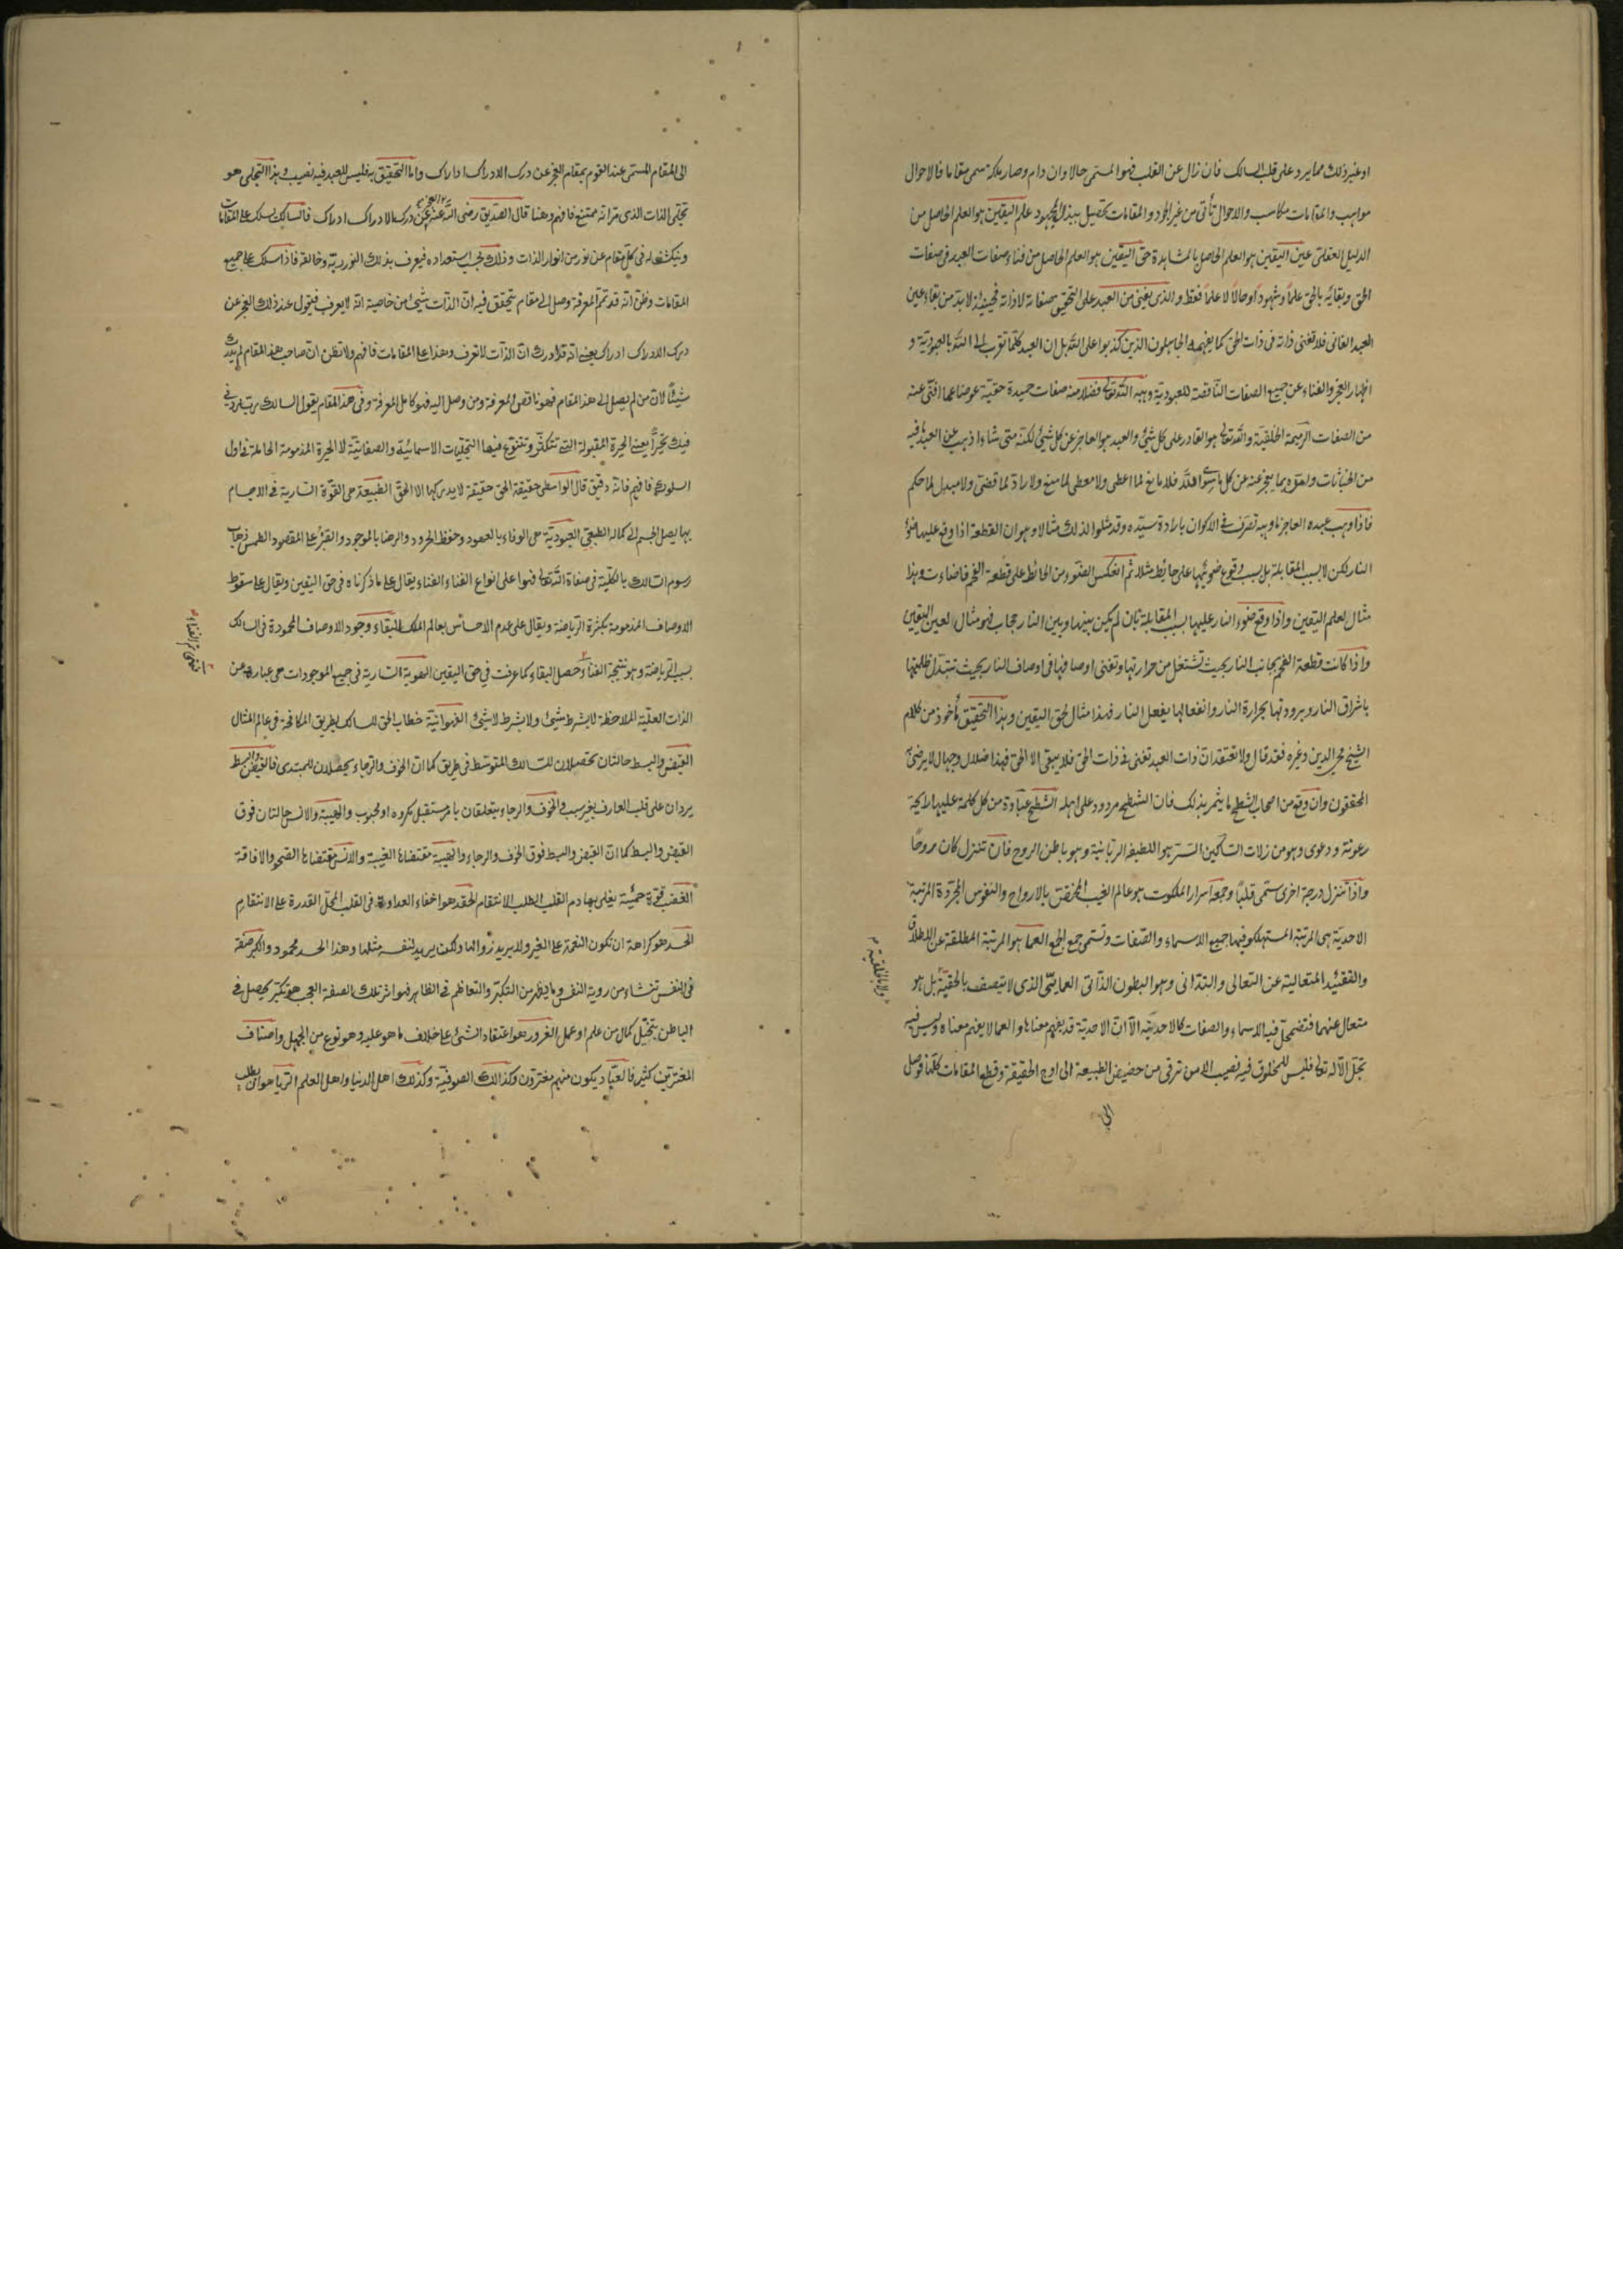 او غير ذلك مما يرد على قلب السالك فان زال عن القلب فهو المسمى حالا وان دام وصار ملكة سمي مقاما فالاحوال
مواهب والمقامات مكاسب والاحوال تأتى من غير الجود والمقامات تحصيل ببذل المجهود علم اليقين هو العلم الحاصل من
الدليل العقلى عين اليقين هو العلم الحاصل بالمشاهدة حق اليقين هو العلم الحاصل من فناء صفات العبد فى صفات
الحق وبقائه بالحق علما وشهودا وحالا لا علما فقط والذى يفنى من العبد على التحقيق صفاته لا ذاته فحينئذ لا بد من بقاء عين
العبد الفانى فلا تفنى ذاته فى ذات الحق كما يفهمه الجاهلون الذين كذبوا على الله بل ان العبد كلما تقرب الى الله بالعبودية و
اظهار العجز والفناء عن جميع الصفات الناقصة للعبودية وهبه الله تعالى فضلا منه صفات حميدة حقية عوضا عما افنى عنه
من الصفات الذميمة الخلقية والله تعالى هو القادر على كل شئ والعبد هو العاجز عن كل شئ لكنه متى شاء اذهب عن العبد ما فيه
من الخباثات وقواه بما يعجز عنه كل ما سوى الله فلا مانع لما اعطى ولا معطى لما منع ولا راد لما قضى ولا مبدل لما حكم
فاذا وهب عبده العاجز ما وهبه تصرف فى الاكوان بارادة سيده وقد مثلوا لذلك مثالا وهو ان القطعة اذا وقع عليها ضوء
النار لكن لا بسبب المقابلة بل بسبب وقوع ضوئها على حائط مثلا ثم انعكس الضوء من الحائط على قطعة الفحم فاضاءت وهذا
مثال لعلم اليقين واذا وقع ضوء النار عليها بسبب المقابلة بان لم يكن بينها وبين النار حجاب فهو مثال لعين اليقين
واذا كانت قطعة الفحم بجانب النار بحيث تشتعل من حرارتها وتفنى اوصافها فى اوصاف النار بحيث تتبدل ظلمتها
باشراق النار وبرودتها بحرارة النار وانفعالها بفعل النار فهذا مثال لحق اليقين وهذا التحقيق مأخوذ من كلام
الشيخ محى الدين وغيره فقد قال ولا تعتقد ان ذات العبد تفنى فى ذات الحق فلا يبقى الا الحق فهذا ضلال وجهال لا يرضى
المحققون وان وقع من اصحاب الشطح ما يشعر بذلك فان الشطح مردود على اهله الشطح عبارة من كل كلمة عليها رايحة
رعونة ودعوى وهو من زلات السالكين السر هو اللطيفة الربانية وهو باطن الروح فان تنزل كان روحا
واذا تنزل درجة اخرى سمى قلبا وجمعه اسرار الملكوت هو عالم الغيب المختص بالارواح والنفوس المجردة المرتبة
الاحدية هى المرتبة المستهلك فيها جميع الاسماء والصفات وتسمى جمع الجمع العما هو المرتبة المطلقة عن الاطلاق
والتقييد المتعالية عن التعالى والتدانى وهو البطون الذاتى العمائى الذى لا يتصف بالحقية بل هو
ولا بالخلقية
متعال عنهما فتضمحل فيه الاسماء والصفات كالاحدية الا ان الاحدية قد يفهم معناها والعما لا يفهم معناه وليس فيه
تجل الا له تعالى فليس للمخلوق فيه نصيب الا من ترقى من حضيض الطبيعة الى اوج الحقيقة وقطع المقامات كلها فوصل
الى
الى المقام المسمى عند القوم بمقام العجز عن درك الادراك ادراك واما التحقيق به فليس للعبد فيه نصيب وهذا التجلى هو
تجلى الذات الذى مر انه ممتنع فافهم وهنا قال الصديق رضى الله عنه العجز عن درك الادراك ادراك فالسالك يسلك على المقامات
وينكشف له فى كل مقام عن نور من انوار الذات وذلك بحسب استعداده فيعرف بذلك النور ربه وخالقه فاذا سلك على جميع
المقامات وظن انه قد تم المعرفة وصل الى مقام يتحقق فيه ان الذات شئ من خاصيته انه لا يعرف فيقول عند ذلك العجز عن
درك الادراك ادراك يعنى انه قد ادرك ان الذات لا تعرف وهذا على المقامات فافهم ولا تظن ان صاحب هذا المقام لم يدرك
شيئا لان من لم يصل الى هذا المقام فهو ناقص المعرفة ومن وصل اليه فهو كامل المعرفة وفى هذا المقام يقول السالك رب زدنى
فيك تحيرا يعنى الحيرة المقبولة التى تتكثر وتتنوع فيها التجليات الاسمائية والصفاتية لا الحيرة المذمومة الحاملة فى اول
السلوك فافهم فانه دقيق قال الواسطى حقيقة الحق حقيقة لا يدركها الا الحق الطبيعة هى القوة السارية فى الاجسام
بها يصل الجسم الى كماله الطبيعى العبودية هى الوفاء بالعهود وحفظ الحدود والرضا بالموجود والصبر على المفقود الطمس ذهاب
رسوم السالك بالكلية فى صفات الله تعالى فهو اعلى انواع الفناء الفناء يقال على ما ذكرناه فى حق اليقين ويقال على سقوط
الاوصاف المذمومة بكثرة الرياضة ويقال على عدم الاحساس بعالم الملك البقاء وجود الاوصاف المحمودة فى السالك
بسبب الرياضة وهو نتيجة الفناء حصل البقاء كما عرفت فى حق اليقين الهوية السارية فى جميع الموجودات هى عبارة عن
الذات العلية الملاحظة لا بشرط شئ ولا بشرط لا شئ الفهوانية خطاب الحق للسالك بطريق المكافحة فى عالم المثال
القبض والبسط حالتان تحصلان للسالك المتوسط فى طريق كما ان الخوف والرجاء يحصلان للمبتدى فالقبض والبسط
يردان على قلب العارف بغير سبب فى الخوف والرجاء يتعلقان بامر مستقبل مكروه او محبوب والهيبة والانس حالتان فوق
القبض والبسط كما ان القبض والبسط فوق الخوف والرجاء والهيبة مقتضاها الغيبة والانس مقتضاها الصحو والافاقة
الغضب قوة حمية يغلى بها دم القلب لطلب الانتقام الحقد هو اخفاء العداوة فى القلب لمحل القدرة على الانتقام
الحسد هو كراهة ان تكون النعمة على الغير ولا يريد زوالها ولكن يريد لنفسه مثلها وهذا الحسد محمود والكبر صفة
فى النفس تنشاء من روية النفس وما يظهر من التكبر والتعاظم فى الظاهر فهو اثر تلك الصفة العجب هو تكبر يحصل فى
الباطن بتخيل كمال من علم او عمل الغرور هو اعتقاد الشئ على خلاف ما هو عليه وهو نوع من الجهل واصناف
المغترين كثير فالعباد يكون منهم مغترون وكذلك الصوفية وكذلك اهل الدنيا واهل العلم الريا هو ان يطلب